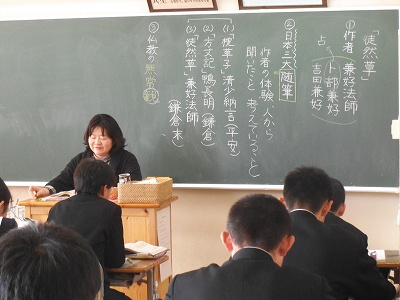 「徒然草」
①作者 兼好法師
卜部兼好
占
吉田兼好
②日本三大随筆
作者の体験、人から
聞いたこと、考えていること
(1)「枕草子」清少納言(平安)
(2)「方丈記」鴨長明(鎌倉)
(3)「徒然草」兼好法師
(鎌倉末)
③仏教の無常観